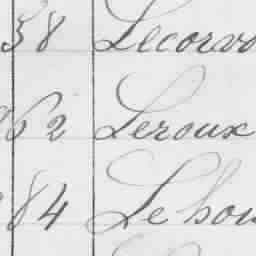 58 Lecorvo
62 Leroux
84 Le hou